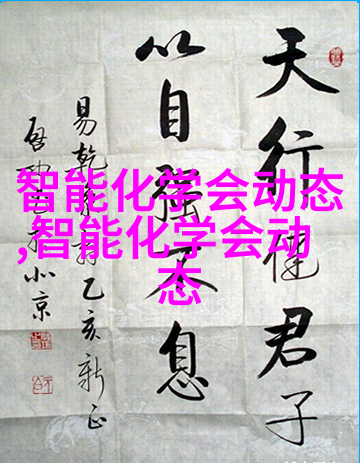 智能化学会动态
,智能化学会动
态
天行健君子
以自强不息
易乾乙亥新正
启功北京